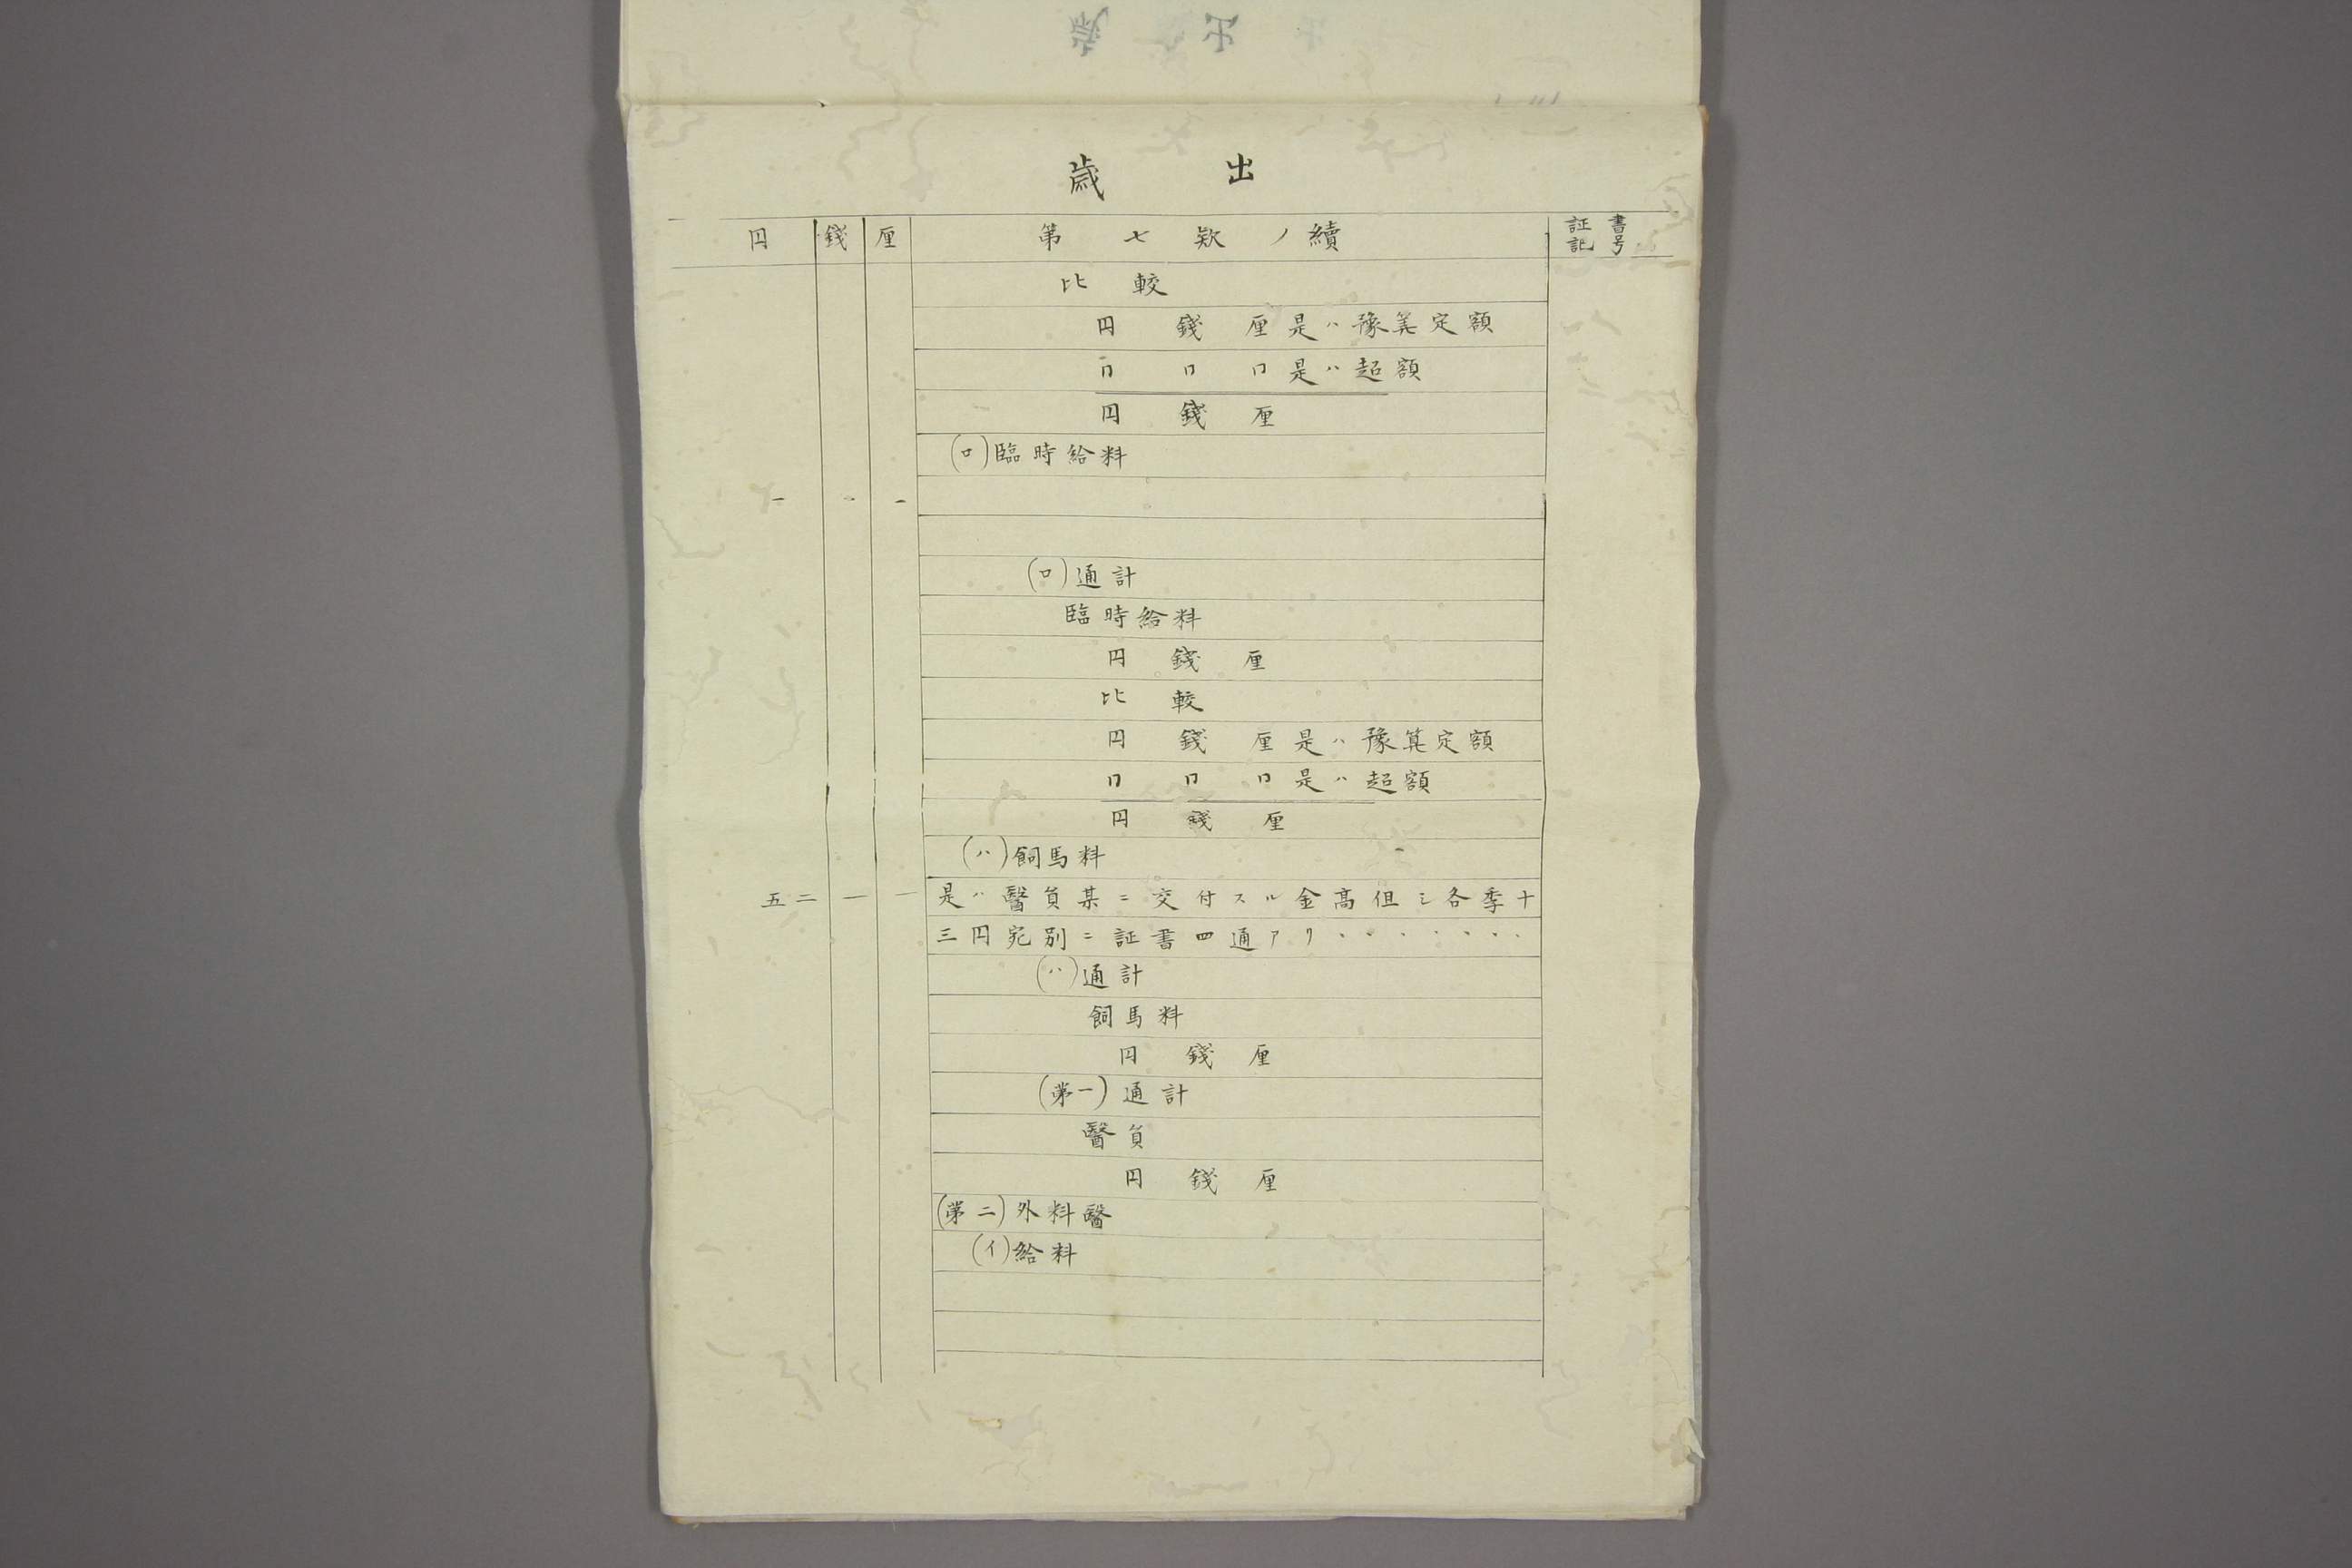 歳出
円 錢 厘 第七款ノ續 証書
記号
比較
円 錢 厘 是ハ豫算定額
〃 〃 〃 是ハ超額
円 錢 厘
(ロ)臨時給料
一 一 一
(ロ)通計
臨時給料
円 錢 厘
比較
円 錢 厘 是ハ豫算定額
〃 〃 〃 是ハ超額
円 錢 厘
(ハ)飼馬料
五二 一 一 是ハ醫員某ニ交付スル金高但シ各季十
三円宛別ニ証書四通アリ・・・・・・・
(ハ)通計
飼馬料
円 錢 厘
(第一)通計
醫員
円 錢 厘
(第二)外科醫
(イ)給料